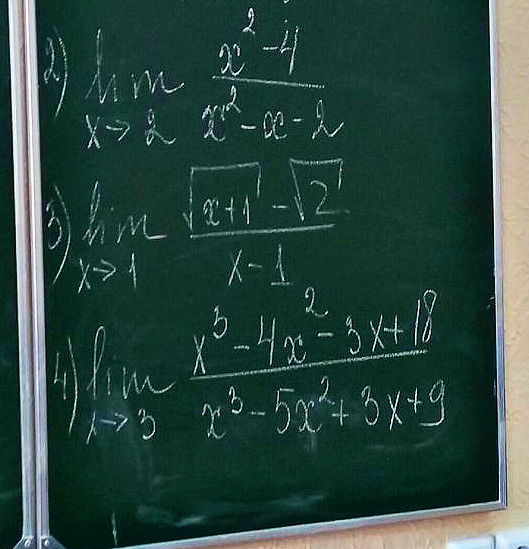 2) lim x→2 (x² - 4)/(x² - x - 2)
3) lim x→1 (√(x+1) - √2)/(x - 1)
4) lim x→3 (x³ - 4x² - 3x + 18)/(x³ - 5x² + 3x + 9)